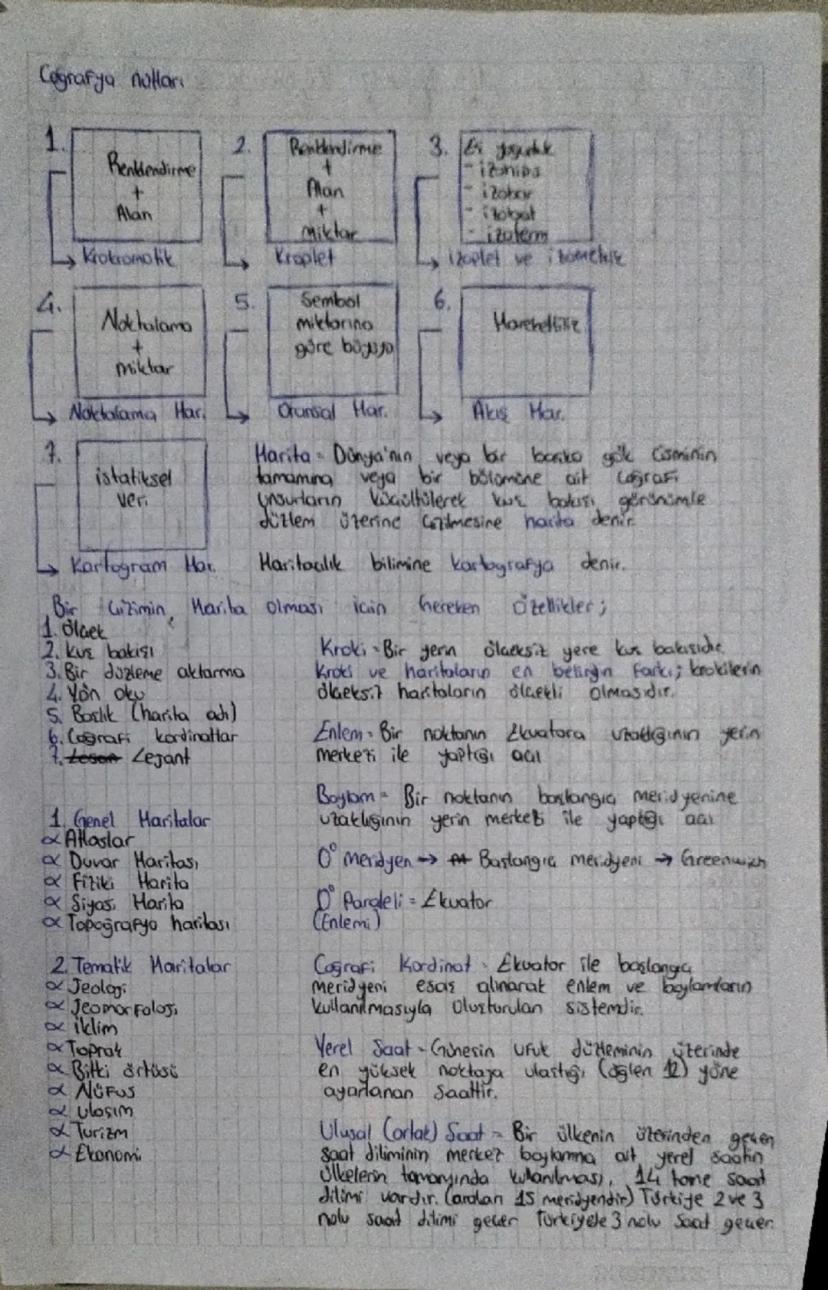 Coğrafya notları
1.
Renklendirme
+
Alan
Krokromatik
2.
Renklendirme
+
Alan
+
Miktar
Kroplet
3.
- izohips
- izobar
- izobat
- izoterm
izoplet ve izometrik
4.
Noktalama
+
miktar
Noktalama Har.
5.
Sembol
miktarına
göre büyüyo
Oransal Har.
6.
Akış Har.
7.
istatiksel
veri
Kartogram Har.
Harita = Dünya'nın veya bir başka gök cisminin
tamamına veya bir bölümüne ait coğrafi
unsurların küçültülerek kuş bakışı görünümle
düzlem üzerine çizilmesine harita denir.
Haritacılık bilimine kartografya denir.
Bir çizimin, Harita olması için gereken özellikler;
1. Ölçek
2. kuş bakışı
3. Bir düzleme aktarma
4. Yön oku
5. Başlık (harita adı)
6. Coğrafi kordinatlar
7. Lejant
Kroki = Bir yerin ölçeksiz yere kuş bakışıdır.
Kroki ve haritaların en belirgin farkı; krokilerin
ölçeksiz haritaların ölçekli olmasıdır.
Enlem = Bir noktanın Ekvatora uzaklığının yerin
merkezi ile yaptığı açı
Boylam = Bir noktanın başlangıç meridyenine
uzaklığının yerin merkezi ile yaptığı açı
0° meridyen → Başlangıç meridyeni → Greenwich
0° Paraleli = Ekvator
(Enlemi)
1. Genel Haritalar
∝ Atlaslar
∝ Duvar Haritası
∝ Fiziki Harita
∝ Siyasi Harita
∝ Topoğrafya haritası
2. Tematik Haritalar
∝ Jeoloji
∝ Jeomorfoloji
∝ iklim
∝ Toprak
∝ Bitki örtüsü
∝ Nüfus
∝ ulaşım
∝ Turizm
∝ Ekonomi
Coğrafi Kordinat = Ekvator ile başlangıç
meridyeni esas alınarak enlem ve boylamların
kullanılmasıyla oluşturulan sistemdir.
Yerel Saat = Güneşin ufuk düzleminin üzerinde
en yüksek noktaya ulaştığı (öğlen 12) yöne
ayarlanan saattir.
Ulusal (ortak) Saat = Bir ülkenin üzerinden geçen
saat diliminin merkez boylamına ait yerel saatin
ülkelerin tamamında kullanılması. 14 tane saat
dilimi vardır. (araları 15 meridyendir) Türkiye 2 ve 3
nolu saat dilimi geçer Türkiyede 3 nolu saat geçer